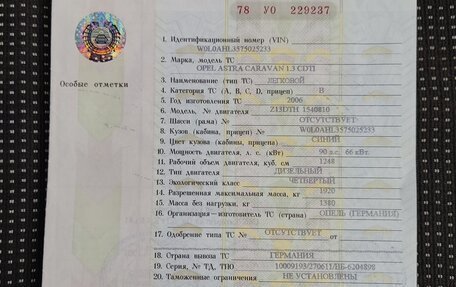 78 УО 229237
1. Идентификационный номер (VIN)
W0L0AHL3575025233
2. Марка, модель ТС
OPEL ASTRA CARAVAN 1.3 CDTI
Особые отметки
3. Наименование (тип ТС) ЛЕГКОВОЙ
4. Категория ТС (A, B, C, D, прицеп) B
5. Год изготовления ТС 2006
6. Модель, № двигателя Z13DTH 1540810
7. Шасси (рама) № ОТСУТСТВУЕТ
8. Кузов (кабина, прицеп) № W0L0AHL3575025233
9. Цвет кузова (кабины, прицепа) СИНИЙ
10. Мощность двигателя, л. с. (кВт) 90 л.с. 66 кВт.
11. Рабочий объем двигателя, куб. см 1248
12. Тип двигателя ДИЗЕЛЬНЫЙ
13. Экологический класс ЧЕТВЕРТЫЙ
14. Разрешенная максимальная масса, кг 1920
15. Масса без нагрузки, кг 1380
16. Организация—изготовитель ТС (страна) ОПЕЛЬ (ГЕРМАНИЯ)
17. Одобрение типа ТС № ОТСУТСТВУЕТ от
18. Страна вывоза ТС ГЕРМАНИЯ
19. Серия, № ТД, ТПО 10009193/270611/ВБ-6204898
20. Таможенные ограничения НЕ УСТАНОВЛЕНЫ